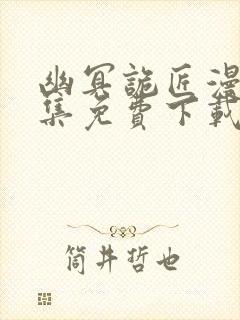 幽冥詭匠漫
集免費下載
筒井哲也